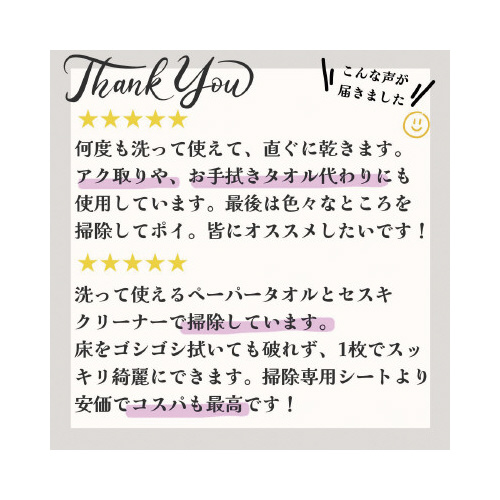 Thank You
こんな声が
届きました
★★★★★
何度も洗って使えて、直ぐに乾きます。
アク取りや、お手拭きタオル代わりにも
使用しています。最後は色々なところを
掃除してポイ。皆にオススメしたいです！
★★★★★
洗って使えるペーパータオルとセスキ
クリーナーで掃除しています。
床をゴシゴシ拭いても破れず、1枚でスッ
キリ綺麗にできます。掃除専用シートより
安価でコスパも最高です！